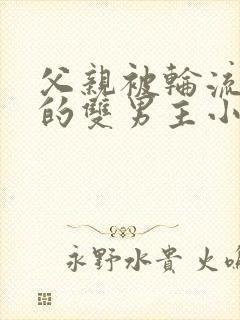 父親被輪流
的雙男主小
永野水貴 火